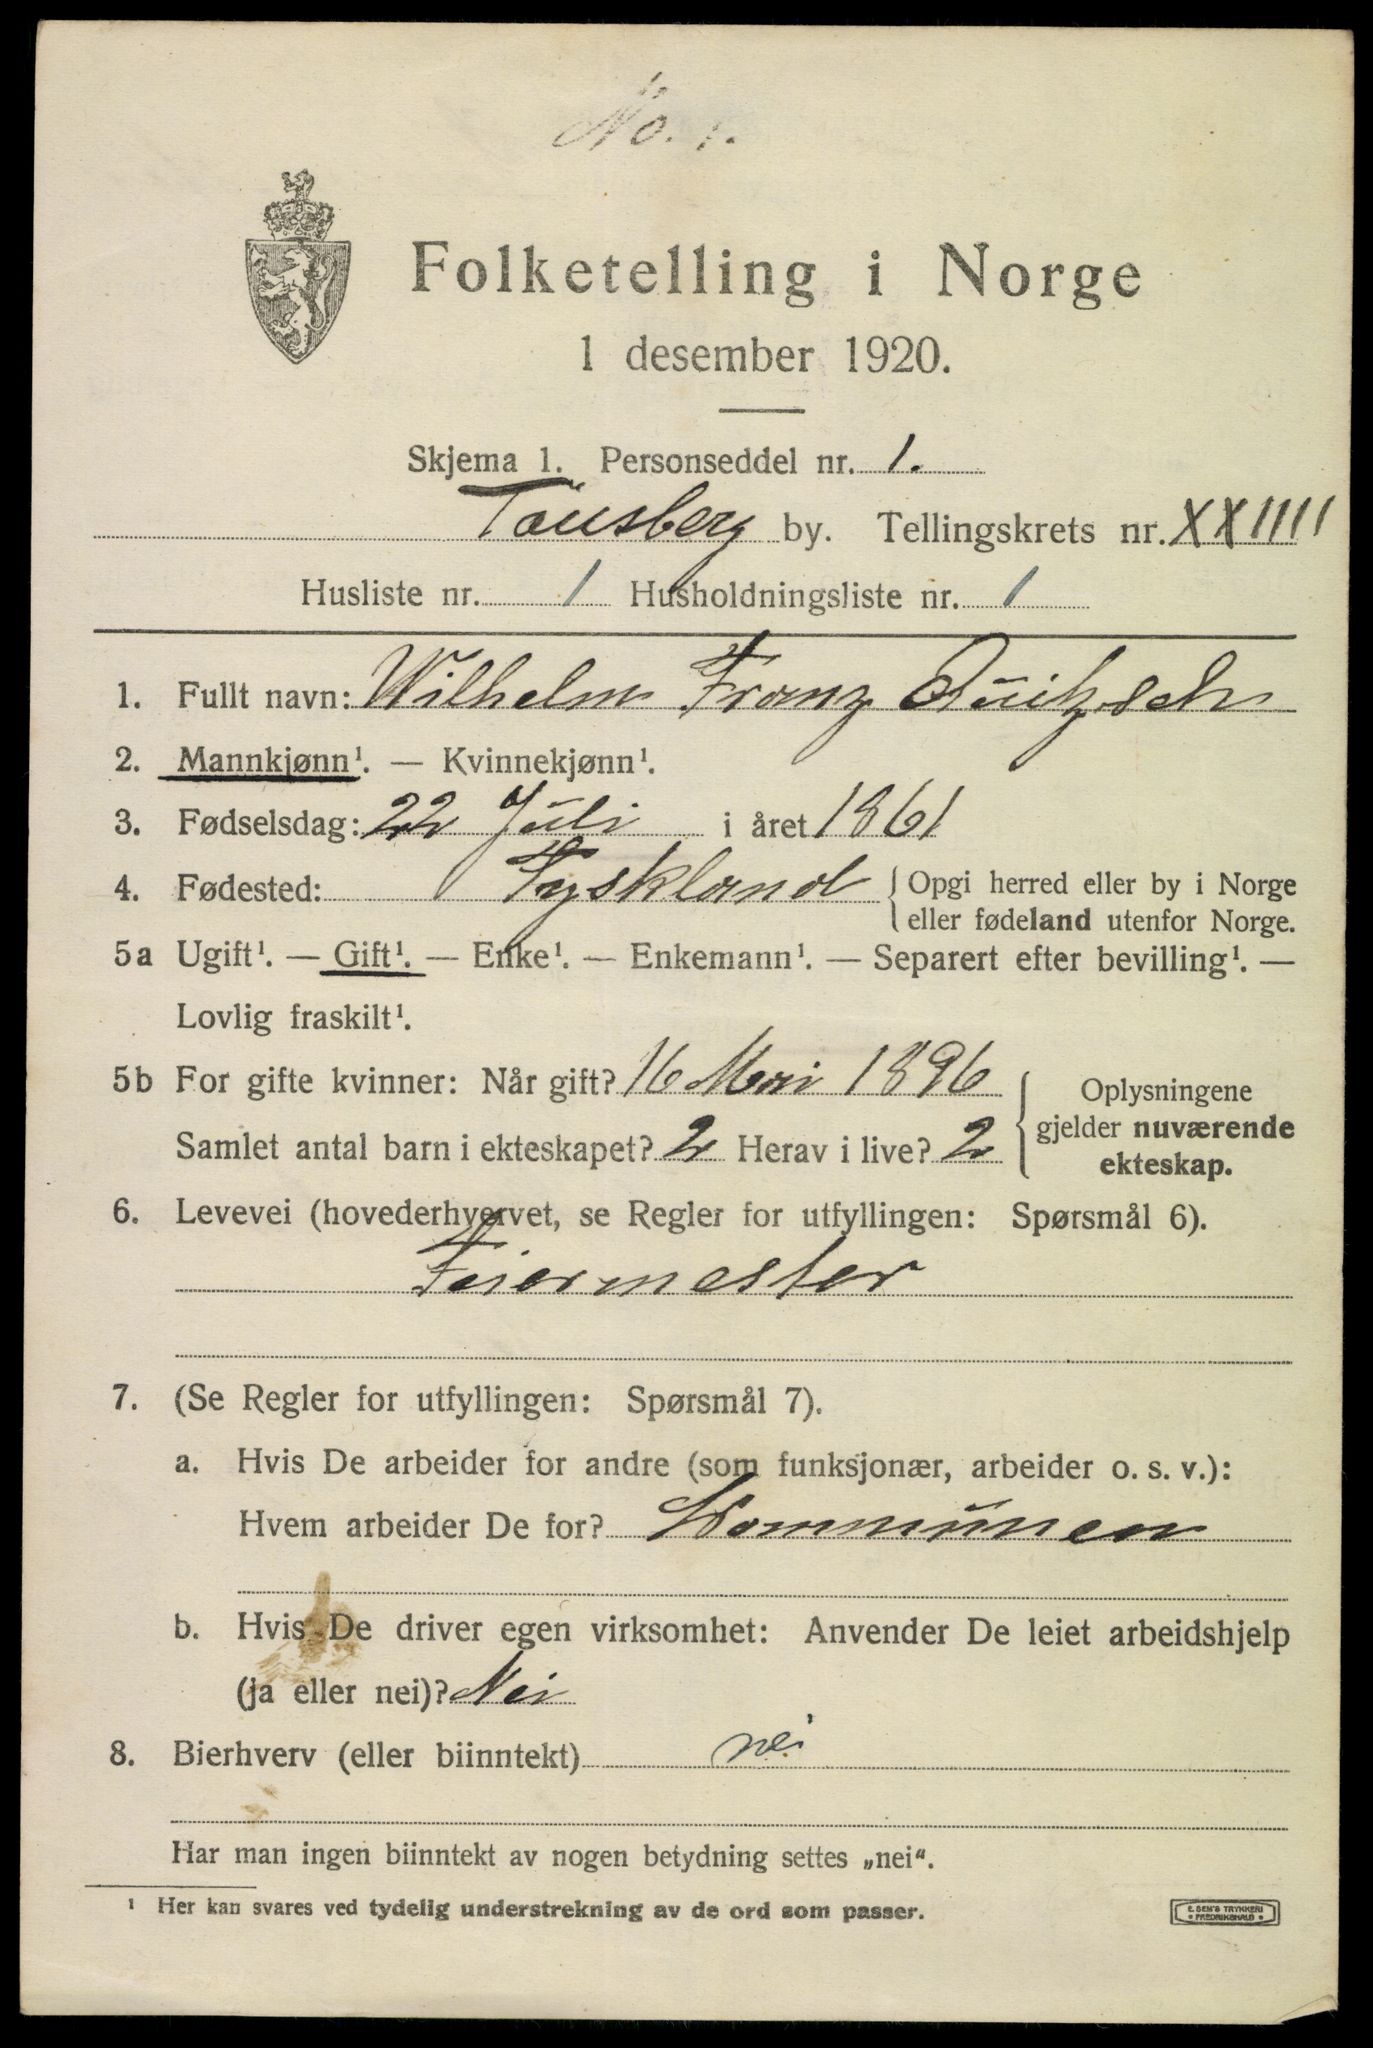 No. 1.
Folketelling i Norge
1 desember 1920.
Skjema 1. Personseddel nr. 1.
Tønsberg by. Tellingskrets nr. XXIIII
Husliste nr. 1 Husholdningsliste nr. 1
1. Fullt navn: Wilhelm Franz Quitzsch
2. Mannkjønn¹. — Kvinnekjønn¹.
3. Fødselsdag: 22 Juli i året 1861
4. Fødested: Tyskland { Opgi herred eller by i Norge
eller fødeland utenfor Norge.
5a Ugift¹. — Gift¹. — Enke¹. — Enkemann¹. — Separert efter bevilling¹. —
Lovlig fraskilt¹.
5b For gifte kvinner: Når gift? 16 Mai 1896
Samlet antal barn i ekteskapet? 2 Herav i live? 2
Oplysningene
gjelder nuværende
ekteskap.
6. Levevei (hovederhvervet, se Regler for utfyllingen: Spørsmål 6).
Feiermester
7. (Se Regler for utfyllingen: Spørsmål 7).
a. Hvis De arbeider for andre (som funksjonær, arbeider o. s. v.):
Hvem arbeider De for? Kommunen
b. Hvis De driver egen virksomhet: Anvender De leiet arbeidshjelp
(ja eller nei)? Nei
8. Bierhverv (eller biinntekt) nei
Har man ingen biinntekt av nogen betydning settes „nei“.
¹ Her kan svares ved tydelig understrekning av de ord som passer.
E. SEM'S TRYKKERI
FREDRIKSHALD